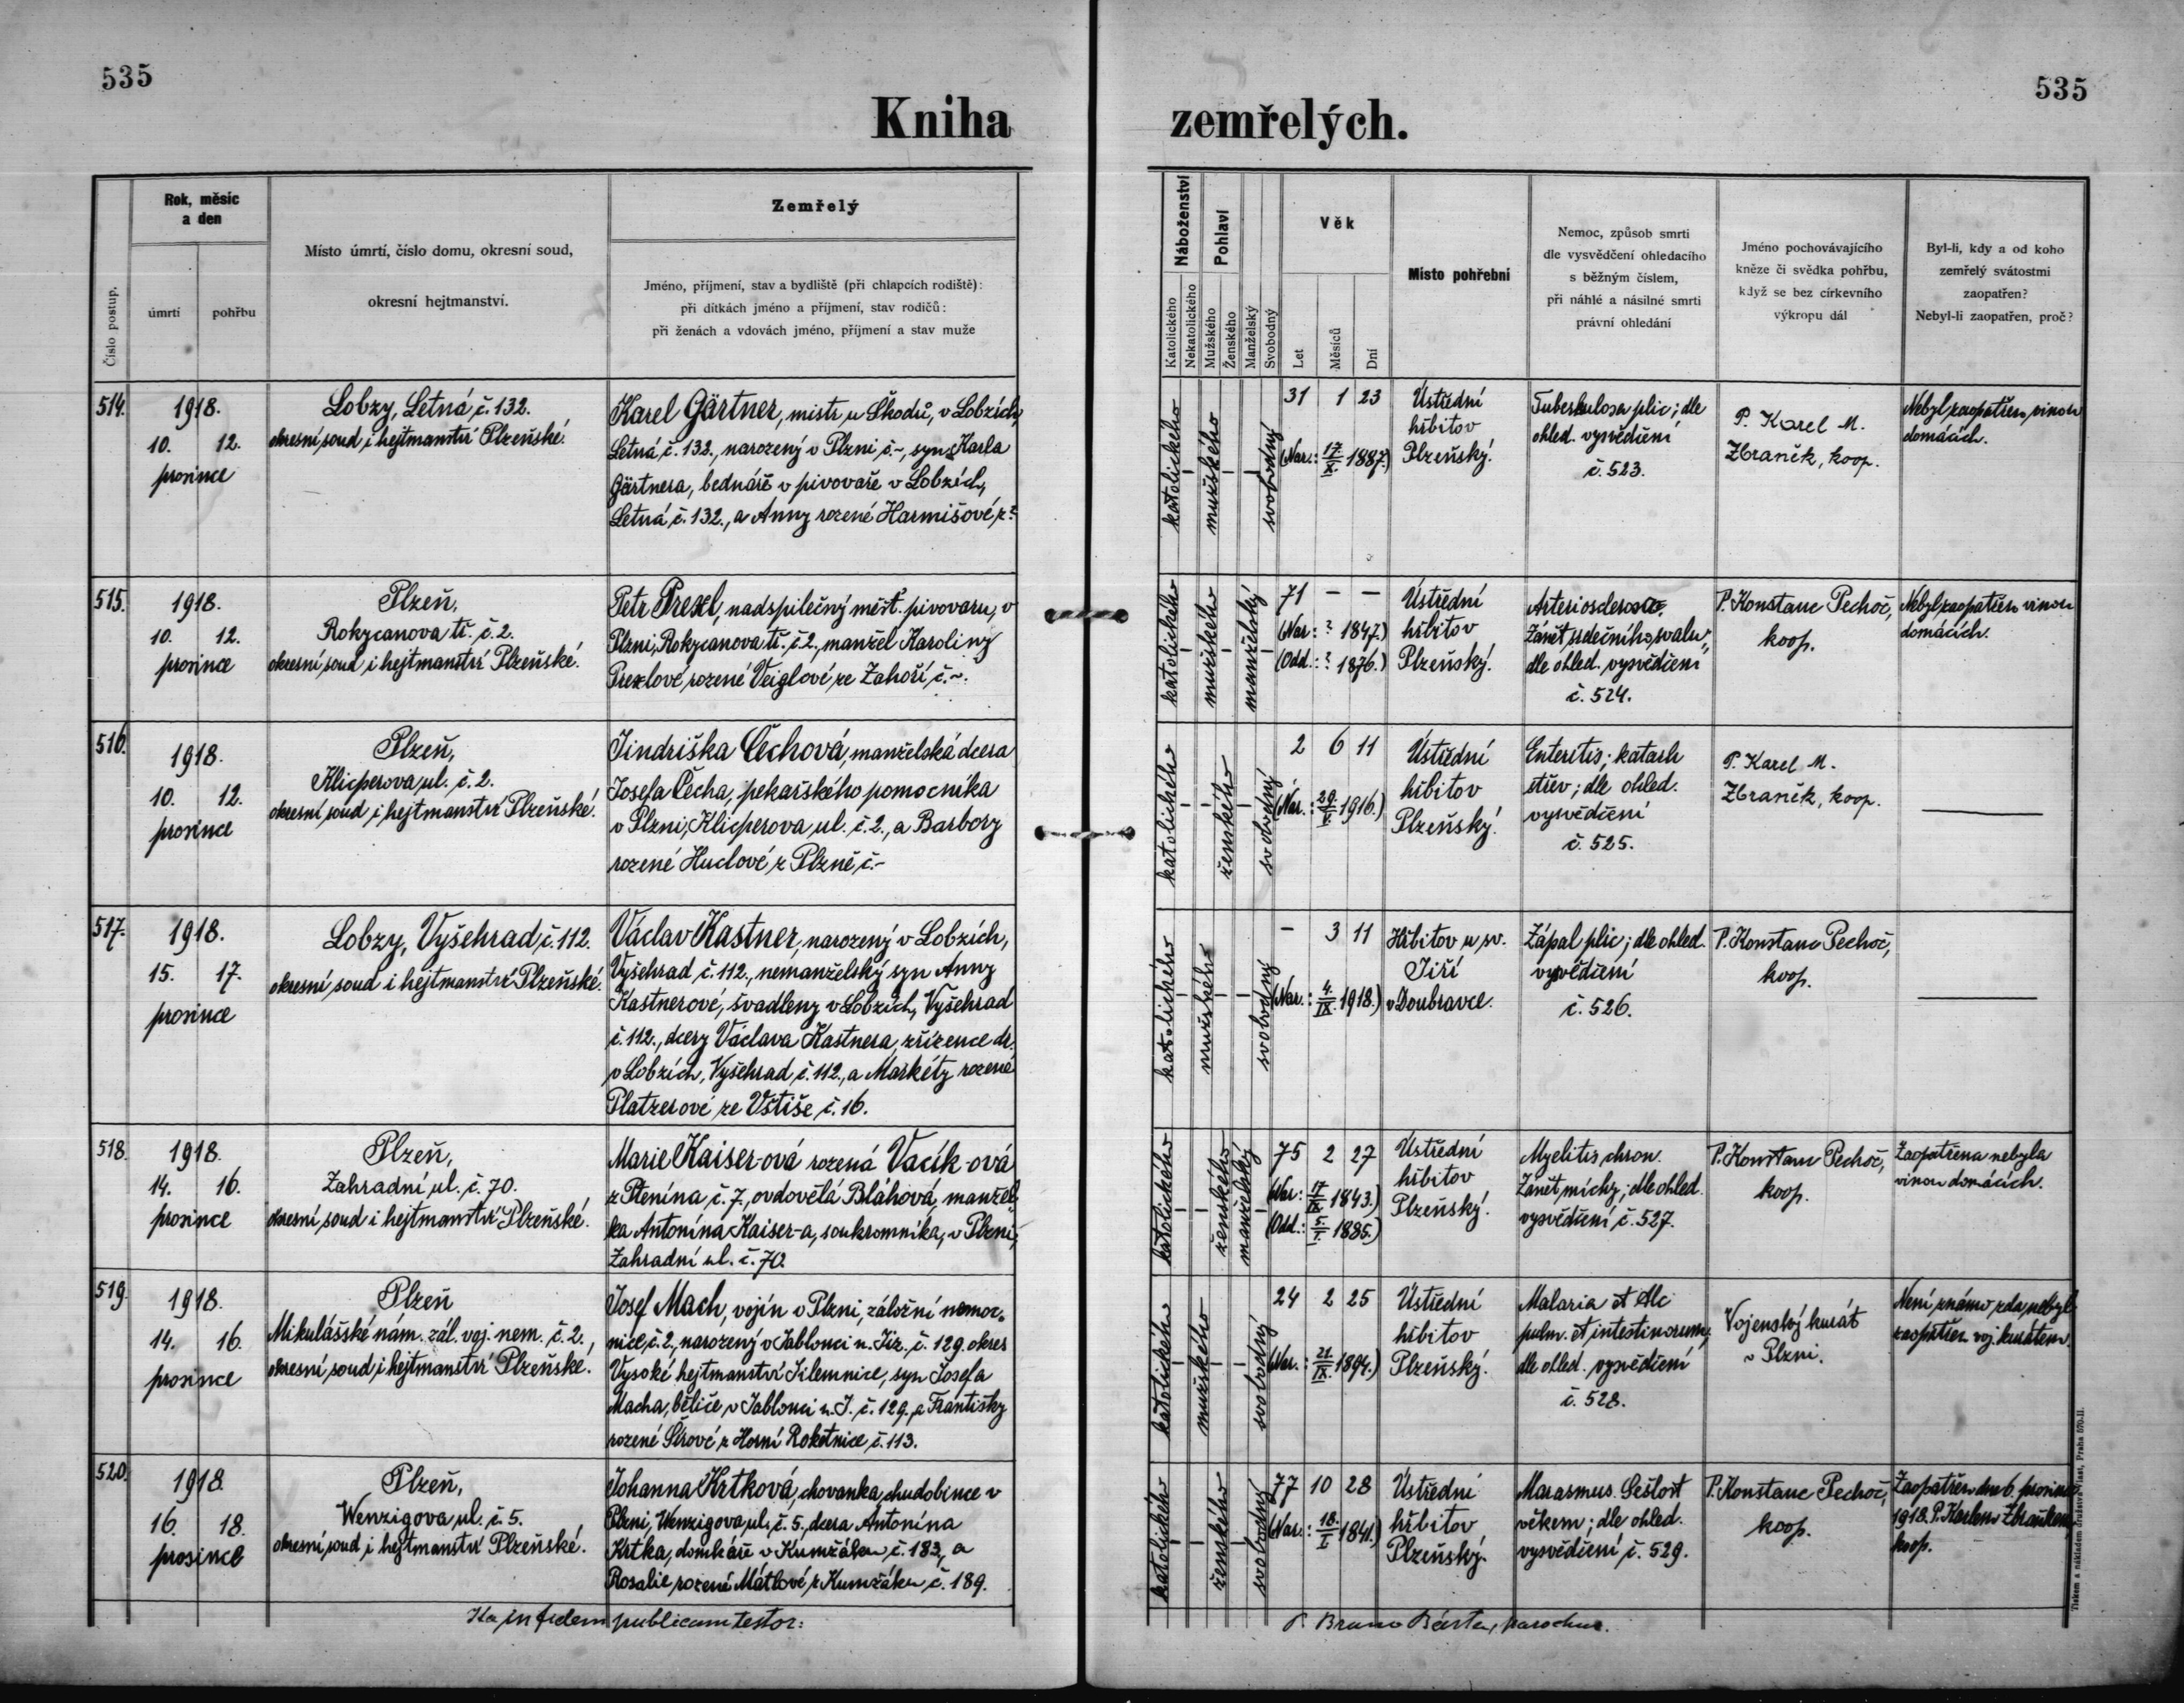 535
535
Kniha zemřelých.
Číslo postup.
Rok, měsíc
a den
úmrtí
pohřbu
Místo úmrtí, číslo domu, okresní soud,
okresní hejtmanství.
Zemřelý
Jméno, příjmení, stav a bydliště (při chlapcích rodiště):
při dítkách jméno a příjmení, stav rodičů:
při ženách a vdovách jméno, příjmení a stav muže
Náboženství
Katolického
Nekatolického
Pohlaví
Mužského
Ženského
Manželský
Svobodný
Věk
Let
Měsíců
Dní
Místo pohřební
Nemoc, způsob smrti
dle vysvědčení ohledacího
s běžným číslem,
při náhlé a násilné smrti
právní ohledání
Jméno pochovávajícího
kněze či svědka pohřbu,
když se bez církevního
výkropu dál
Byl-li, kdy a od koho
zemřelý svátostmi
zaopatřen?
Nebyl-li zaopatřen, proč?
514.
1918.
10. 12.
prosince
Lobzy, Letná č. 132.
okresní soud i hejtmanství Plzeňské.
Karel Gärtner, mistr u Škodů, v Lobzích,
Letná č. 132., narozený v Plzni č.-, syn Karla
Gärtnera, bednáře v pivovaře v Lobzích,
Letná č. 132., a Anny rozené Harmišové z?
katolického
mužského
svobodný
31 1 23
(Nar.: 17/X. 1887.)
Ústřední
hřbitov
Plzeňský.
Tuberkulosa plic; dle
ohled. vysvědčení
č. 523.
P. Karel M.
Zbraněk, koop.
Nebyl zaopatřen vinou
domácích.
515.
1918.
10. 12.
prosince
Plzeň,
Rokycanova tř. č. 2.
okresní soud i hejtmanství Plzeňské.
Petr Prexl, nadspilečný měšť. pivovaru, v
Plzni, Rokycanova tř. č. 2., manžel Karoliny
Prexlové rozené Veiglové ze Zahoří č.-.
katolického
mužského
manželský
71 - -
(Nar.: ? 1847.)
(Odd.: ? 1876.)
Ústřední
hřbitov
Plzeňský.
Arteriosclerosa.
Zánět srdečního svalu;
dle ohled. vysvědčení
č. 524.
P. Konstanc Pechoč,
koop.
Nebyl zaopatřen vinou
domácích.
516.
1918.
10. 12.
prosince
Plzeň,
Klicperova ul. č. 2.
okresní soud i hejtmanství Plzeňské.
Jindriška Čechová, manželská dcera
Josefa Čecha, pekařského pomocníka
v Plzni, Klicperova ul. č. 2., a Barbory
rozené Huclové z Plzně č.-
katolického
ženského
svobodný
2 6 11
(Nar.: 29/V. 1916.)
Ústřední
hřbitov
Plzeňský.
Enteritis; katarh
střev; dle ohled.
vysvědčení
č. 525.
P. Karel M.
Zbraněk, koop.
517.
1918.
15. 17.
prosince
Lobzy, Vyšehrad č. 112.
okresní soud i hejtmanství Plzeňské.
Václav Kastner, narozený v Lobzích,
Vyšehrad č. 112., nemanželský syn Anny
Kastnerové, švadleny v Lobzích, Vyšehrad
č. 112., dcery Václava Kastnera, zřízence dr.
v Lobzích, Vyšehrad č. 112., a Markéty rozené
Platzerové ze Vstiše č. 16.
katolického
mužského
svobodný
- 3 11
(Nar.: 4./IX. 1918.)
Hřbitov u sv.
Jiří
v Doubravce.
Zápal plic; dle ohled.
vysvědčení
č. 526.
P. Konstanc Pechoč,
koop.
518.
1918.
14. 16.
prosince
Plzeň,
Zahradní ul. č. 70.
okresní soud i hejtmanství Plzeňské.
Marie Kaiser-ová rozená Vacík-ová
z Ptenína č. 7., ovdovělá Bláhová, manžel-
ka Antonína Kaiser-a, soukromníka, v Plzni,
Zahradní ul. č. 70.
katolického
ženského
manželský
75 2 27
(Nar.: 17/IX. 1843.)
(Odd.: 5./I. 1885.)
Ústřední
hřbitov
Plzeňský.
Myelitis chron.
Zánět míchy; dle ohled.
vysvědčení č. 527.
P. Konstanc Pechoč,
koop.
Zaopatřena nebyla
vinou domácích.
519.
1918.
14. 16.
prosince
Plzeň
Mikulášské nám. zál. voj. nem. č. 2.,
okresní soud i hejtmanství Plzeňské.
Josef Mach, vojín v Plzni, záložní nemoc-
nice č. 2., narozený v Jablonci n. Jiz. č. 129. okres
Vysoké hejtmanství Jilemnice, syn Josefa
Macha, běliče v Jablonci n. J. č. 129., a Františky
rozené Šírové z Horní Rokétnice č. 113.
katolického
mužského
svobodný
24 2 25
(Nar.: 21./IX. 1894.)
Ústřední
hřbitov
Plzeňský.
Malaria et tbc
pulm. et intestinorum;
dle ohled. vysvědčení
č. 528.
Vojenský kurát
v Plzni.
Není známo zda nebyl
zaopatřen voj. kurátem.
520.
1918.
16. 18.
prosince
Plzeň,
Wenzigova ul. č. 5.
okresní soud i hejtmanství Plzeňské.
Johanna Krtková, chovanka chudobince v
Plzni, Wenzigova ul. č. 5., dcera Antonína
Krtka, domkáře v Kumžáku č. 183., a
Rosalie rozené Mátlové z Kumžáku č. 189.
katolického
ženského
svobodný
77 10 28
(Nar.: 18./I. 1841.)
Ústřední
hřbitov
Plzeňský.
Marasmus. Sešlost
věkem; dle ohled.
vysvědčení č. 529.
P. Konstanc Pechoč,
koop.
Zaopatřen dne 6. prosince
1918. P. Karlem Zbraňkem
koop.
Ita in fidem publicam testor:
P. Bruno Bárta, parochus.